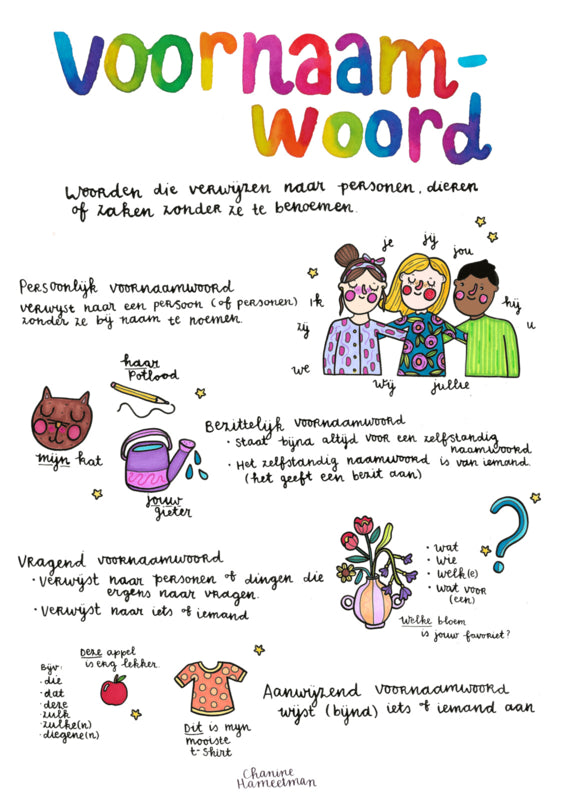 voornaam-
woord
Woorden die verwijzen naar personen, dieren
of zaken zonder ze te benoemen.
je jij jou
Persoonlijk voornaamwoord
verwijst naar een persoon (of personen)
zonder ze bij naam te noemen.
ik
hij
zij
u
we
wij jullie
haar
potlood
mijn kat
jouw
gieter
Bezittelijk voornaamwoord
• staat bijna altijd voor een zelfstandig
naamwoord
• Het zelfstandig naamwoord is van iemand.
(het geeft een bezit aan)
Vragend voornaamwoord
• verwijst naar personen of dingen die
ergens naar vragen.
• verwijst naar iets of iemand
• wat
• wie
• welk(e)
• wat voor
(een)
welke bloem
is jouw favoriet?
Bijv:
• die
• dat
• deze
• zulk
• zulke(n)
• diegene(n)
Deze appel
is erg lekker.
Dit is mijn
mooiste
t-shirt
Aanwijzend voornaamwoord
wijst (bijna) iets of iemand aan
Chanine
Hameetman